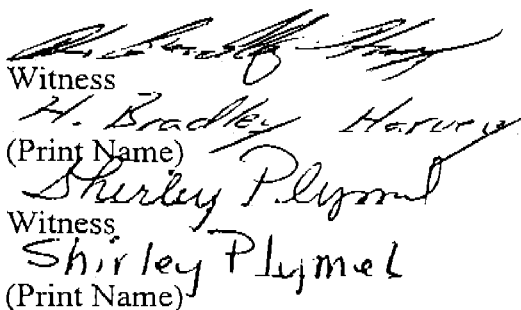 H. Bradley Harvey
Witness
H. Bradley Harvey
(Print Name)
Shirley Plymel
Witness
Shirley Plymel
(Print Name)